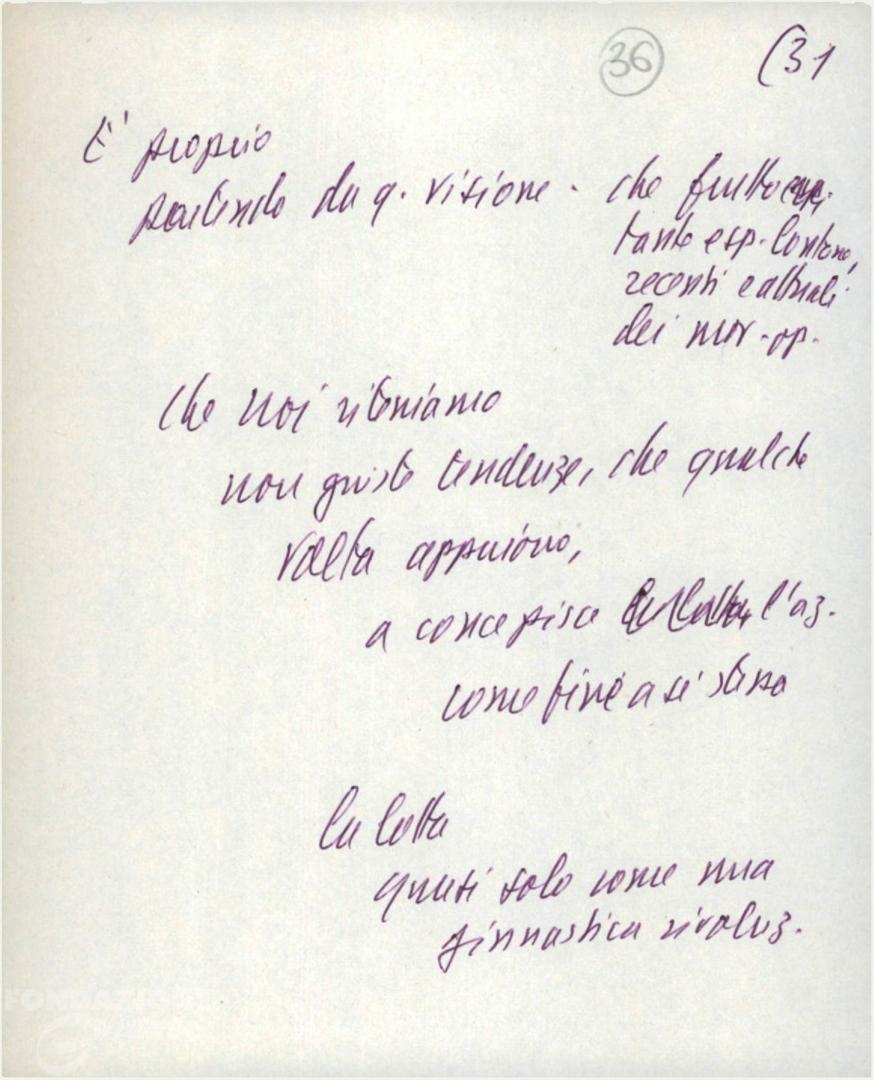 36 (31
E' proprio
partendo da q. visione - che frutto
tante esp. lontane,
recenti e attuali
dei mov. op.
che noi riteniamo
non giuste tendenze, che qualche
volta appaiono,
a concepire l'az.
come fine a sé stessa
la lotta
quasi solo come una
ginnastica rivoluz.
FONDAZIONE